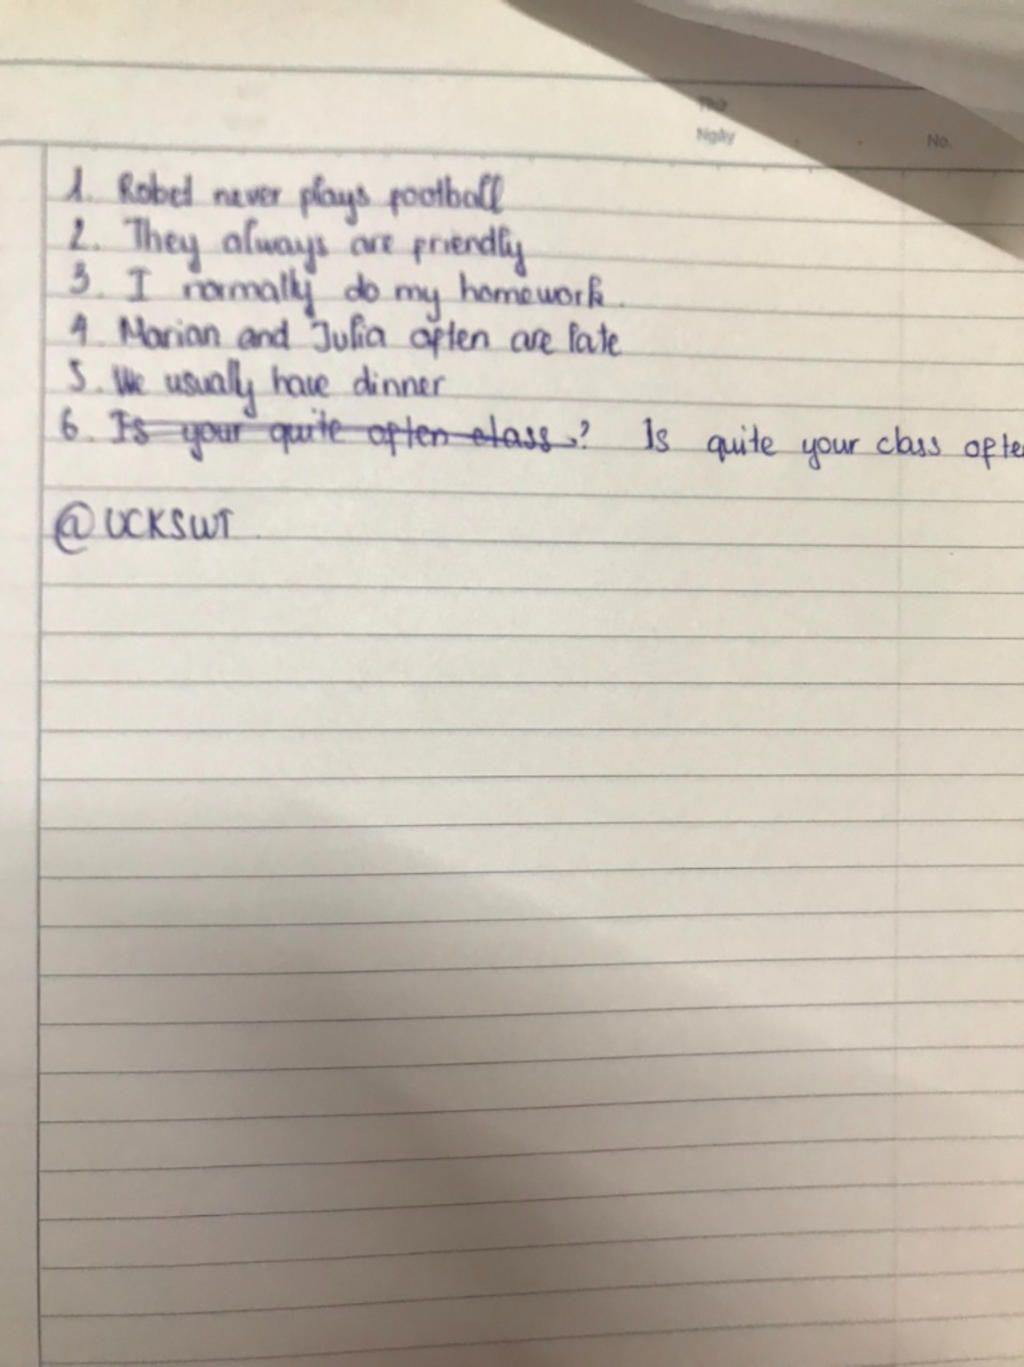 Thứ
Ngày No.
1. Robet never plays football
2. They always are friendly
3. I normally do my homework.
4. Marian and Julia often are late
5. We usually have dinner
6. Is your quite often class? Is quite your class ofte
@UCKSWT